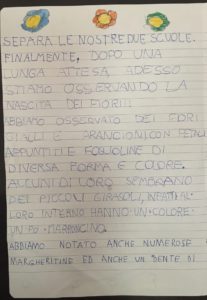 SEPARA LE NOSTRE DUE SCUOLE.
FINALMENTE, DOPO UNA
LUNGA ATTESA, ADESSO
STIAMO OSSERVANDO LA
NASCITA DEI FIORI!
ABBIAMO OSSERVATO DEI FIORI
GIALLI E ARANCIONI CON PETALI
APPUNTITI E FOGLIOLINE DI
DIVERSA FORMA E COLORE.
ALCUNI DI LORO SEMBRANO
DEI PICCOLI GIRASOLI, INFATTI AL
LORO INTERNO HANNO UN COLORE
UN PO' MARRONCINO.
ABBIAMO NOTATO ANCHE NUMEROSE
MARGHERITINE ED ANCHE UN DENTE DI